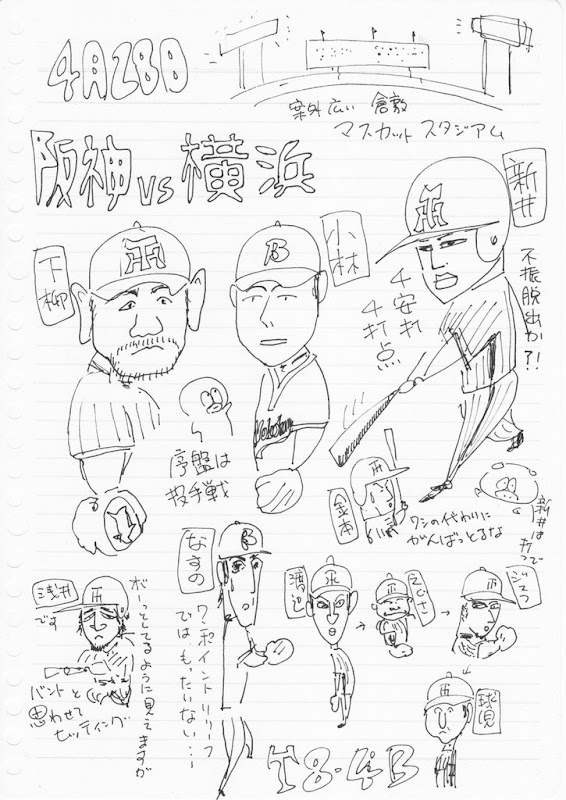 4月28日
案外広い 倉敷
マスカット スタジアム
阪神 vs 横浜
新井
下柳
小林
不振脱出か?!
4安打
4打点
序盤は
投手戦
金本
ワシの代わりに
がんばっとるな
新井は
打つで
浅井
です
ボーっとしてるように見えますが
バントと
思わせて
ヒッティング
なすの
ワンポイントリリーフ
では もったいない…
渡辺
えぐさ
ジェフ
球児
T8-4B